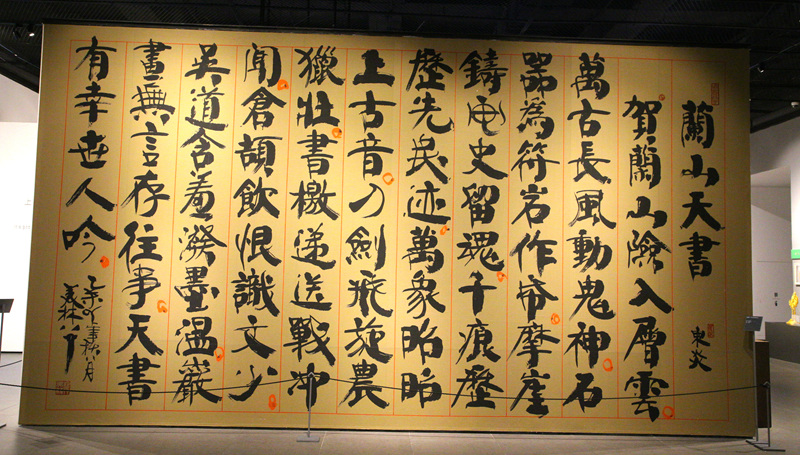 蘭山天書 東炎
賀蘭山險入層雲
萬古長風動鬼神石
器為符岩作帋摩崖
鑄史留魂千痕歷
歷先民迹萬象昭昭
上古音刀劍飛旋農
獵壯書檄遞送戰冲
聞倉頡飲恨識文少
吳道含羞潑墨溫巖
畫無言存往事天書
有幸世人吟